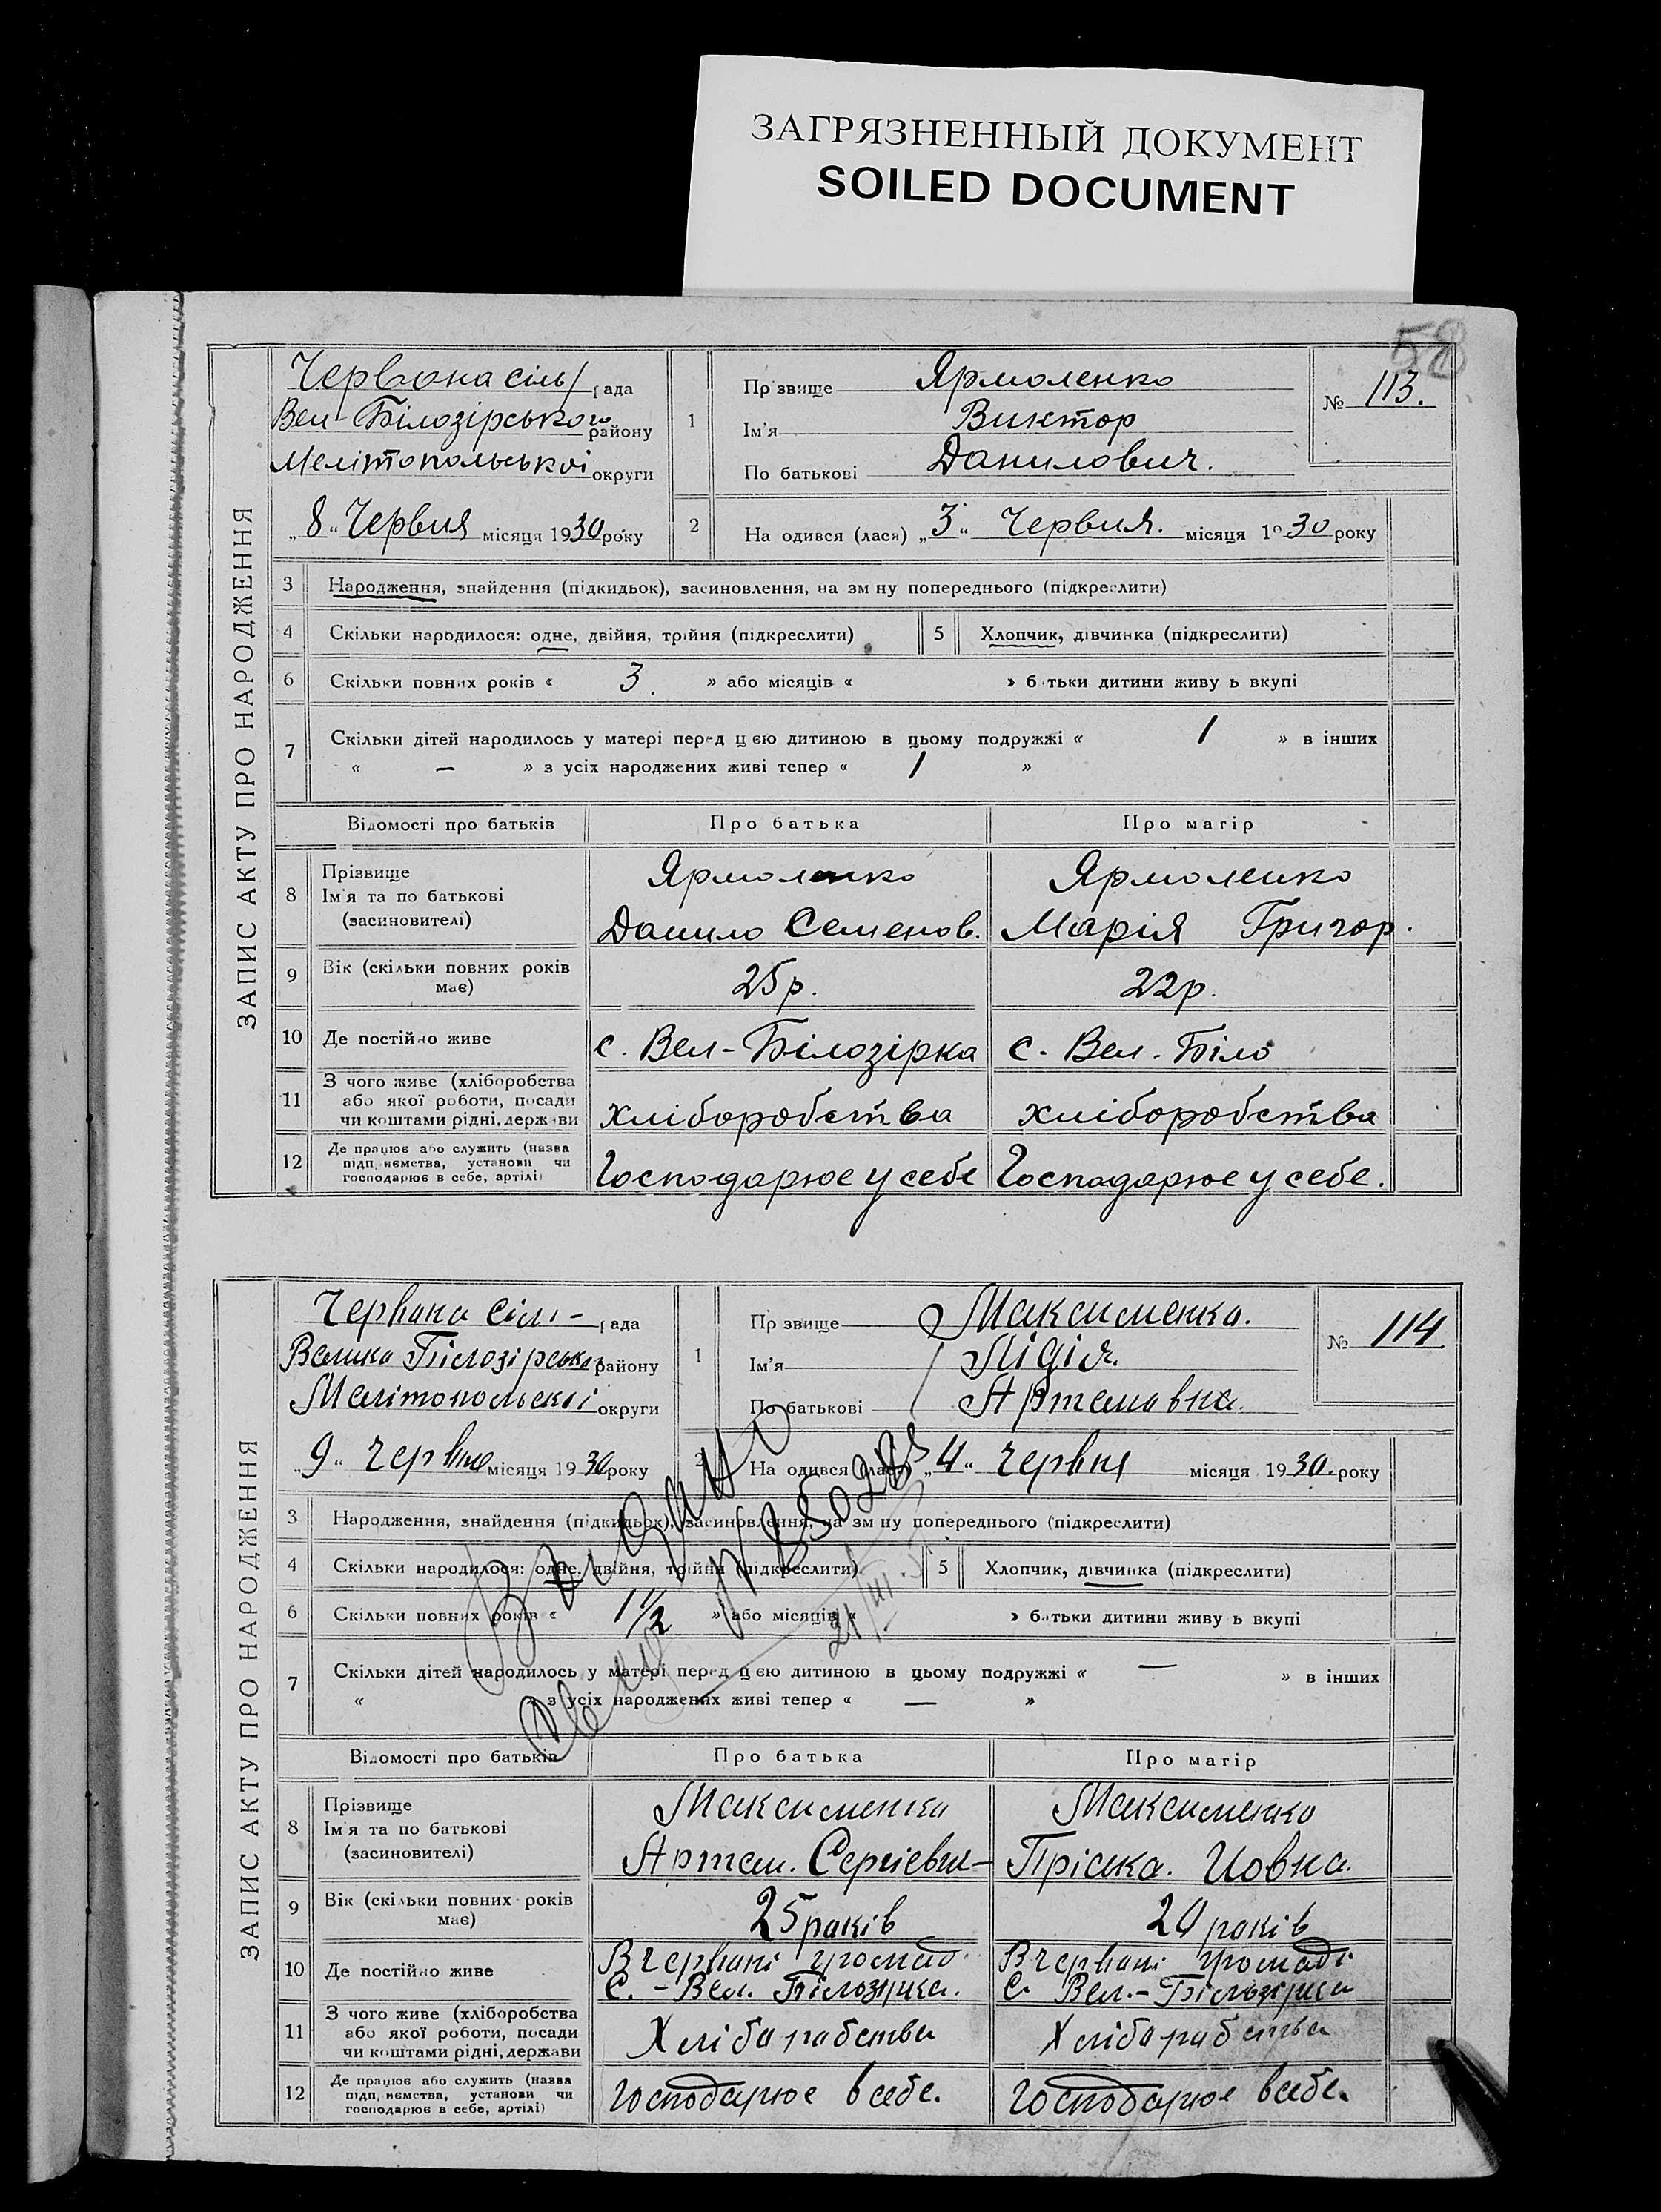 ЗАГРЯЗНЕННЫЙ ДОКУМЕНТ
SOILED DOCUMENT
58
ЗАПИС АКТУ ПРО НАРОДЖЕННЯ
Червона сіль/рада
Вел-Білозірського району
Мелітопольської округи
„8“ Червня місяця 1930 року
1
Пр звище Ярмоленко
Ім'я Виктор
По батькові Данилович.
№ 113.
2
На одився (лася) „3“ Червня. місяця 1930 року
3 Народження, знайдення (підкидьок), засиновлення, на зм ну попереднього (підкреслити)
4 Скільки народилося: одне, двійня, трійня (підкреслити) 5 Хлопчик, дівчинка (підкреслити)
6 Скільки повних років « 3. » або місяців « » б тьки дитини живу ь вкупі
7 Скільки дітей народилось у матері перед цією дитиною в цьому подружжі « 1 » в інших
« — » з усіх народжених живі тепер « 1 »
Відомості про батьків Про батька Про матір
8 Прізвище
Ім'я та по батькові
(засиновителі)
Ярмоленко Ярмоленко
Данило Семенов. Марія Григор.
9 Вік (скільки повних років
має)
25 р. 22 р.
10 Де постійно живе с. Вел-Білозірка с. Вел. Біло
11 З чого живе (хліборобства
або якої роботи, посади
чи коштами рідні, держави
хліборобства хліборобства
12 Де працює або служить (назва
підп иємства, установи чи
господарює в себе, артілі)
Господарює у себе Господарює у себе.
ЗАПИС АКТУ ПРО НАРОДЖЕННЯ
Червона Сіль- рада
Велико Білозірськ району
Мелітопольскої округи
„9“ червня місяця 1930 року
1
Пр звище Максименко.
Ім'я Лідія.
По батькові Артемовна.
№ 114
2
На одився лася „4“ червня місяця 1930. року
3 Народження, знайдення (підкидьок), засиновлення, на зм ну попереднього (підкреслити)
4 Скільки народилося: одне, двійня, трійня (підкреслити) 5 Хлопчик, дівчинка (підкреслити)
6 Скільки повних років « 1 1/2 » або місяців « » батьки дитини живу ь вкупі
7 Скільки дітей народилось у матері перед цією дитиною в цьому подружжі « — » в інших
« » з усіх народжених живі тепер « — »
Відомості про батьків Про батька Про матір
8 Прізвище
Ім'я та по батькові
(засиновителі)
Максименко Максименко
Артем. Сергієвич- Пріська. Иовна.
9 Вік (скільки повних років
має)
25 років 20 років
10 Де постійно живе
В червоні громад. В червоні громаді
С. - Вел. Білозірка. С. Вел.-Білозірка
11 З чого живе (хліборобства
або якої роботи, посади
чи коштами рідні, держави
Хліборобства Хліборобства
12 Де працює або служить (назва
підп иємства, установи чи
господарює в себе, артілі)
Господарює в себе. Господарює в себе.